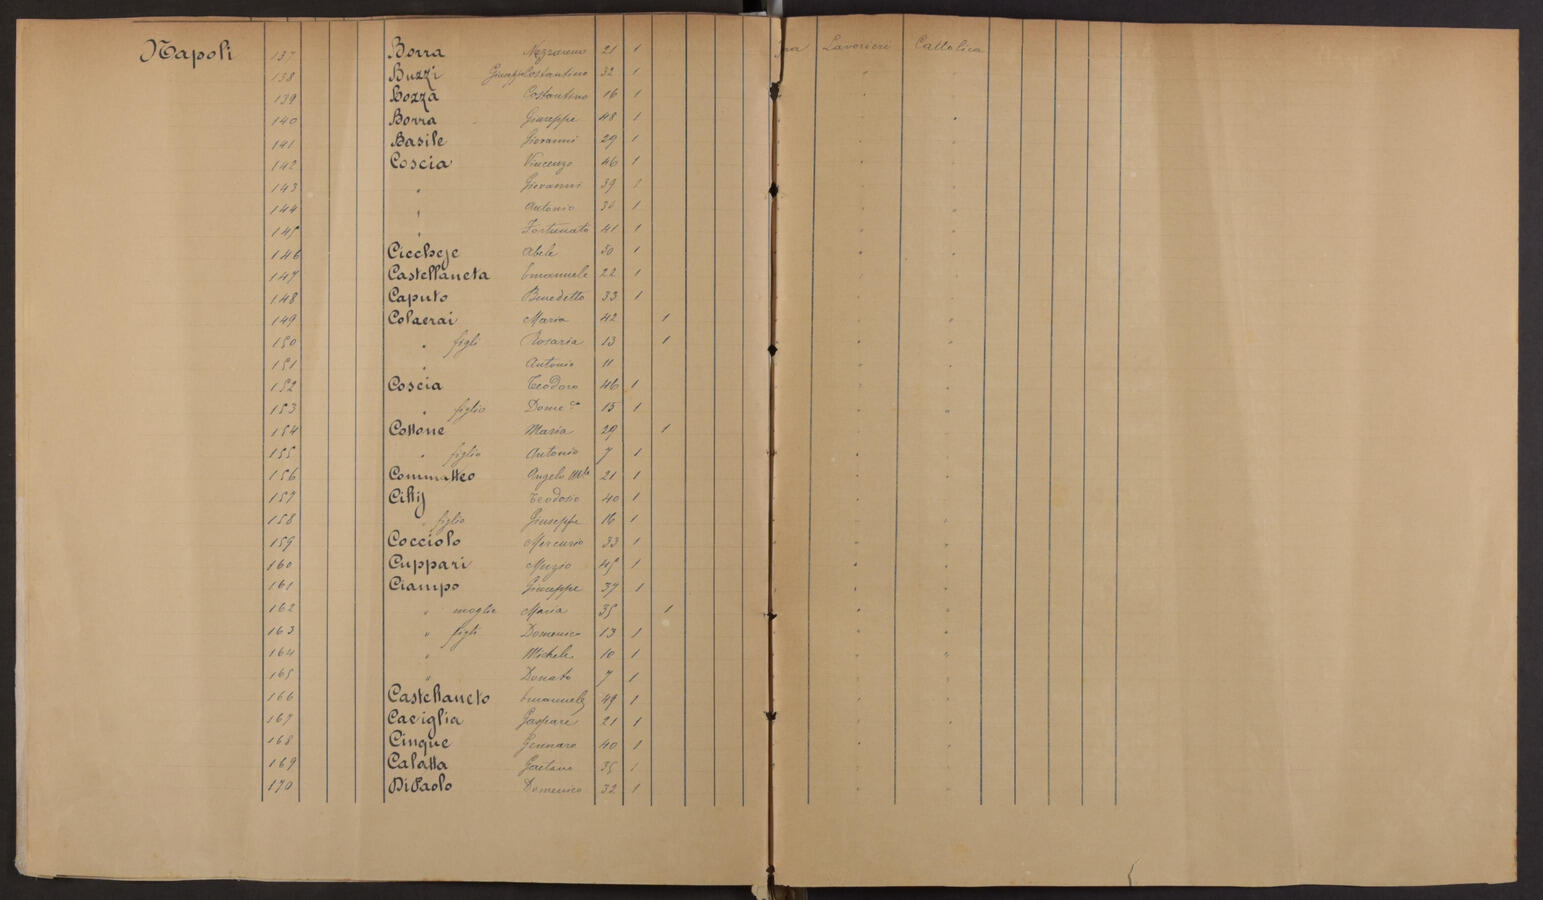 Napoli 137 Borra Nazzareno 21 1 Lavorieri Cattolica
138 Buzzi Costantino 32 1 " "
139 Bozza Costantino 16 1 "
140 Borra Giuseppe 48 1 " "
141 Basile Giovanni 29 1 " "
142 Coscia Vincenzo 46 1 " "
143 " Giovanni 39 1 " "
144 " Antonio 34 1 " "
145 " Fortunato 41 1 " "
146 Abele 30 1 " "
147 Castellaneta Emanuele 22 1 " "
148 Caputo Benedetto 33 1 " "
149 Colaerai Maria 42 1 " "
150 " figli Rosaria 13 1 " "
151 " Antonio 11 " "
152 Coscia Teodoro 46 1 " "
153 " figlio Dome.co 15 1 " "
154 Cottone Maria 29 1 " "
155 " figlio Antonio 7 1 " "
156 Commatteo Angelo 21 1 " "
157 Teodosio 40 1 " "
158 " figlio Giuseppe 16 1 " "
159 Cocciolo Mercurio 33 1 " "
160 Cuppari Muzio 45 1 " "
161 Ciampo Giuseppe 37 1 " "
162 " moglie Maria 35 1 " "
163 " figli Domenico 13 1 " "
164 " Michele 10 1 " "
165 " Donato 7 1 " "
166 Castellaneto Emanuele 49 1 " "
167 Caciglia Gaspare 21 1 " "
168 Cinque Gennaro 40 1 " "
169 Calatta Gaetano 35 1 " "
170 DiPaolo Domenico 32 1 " "